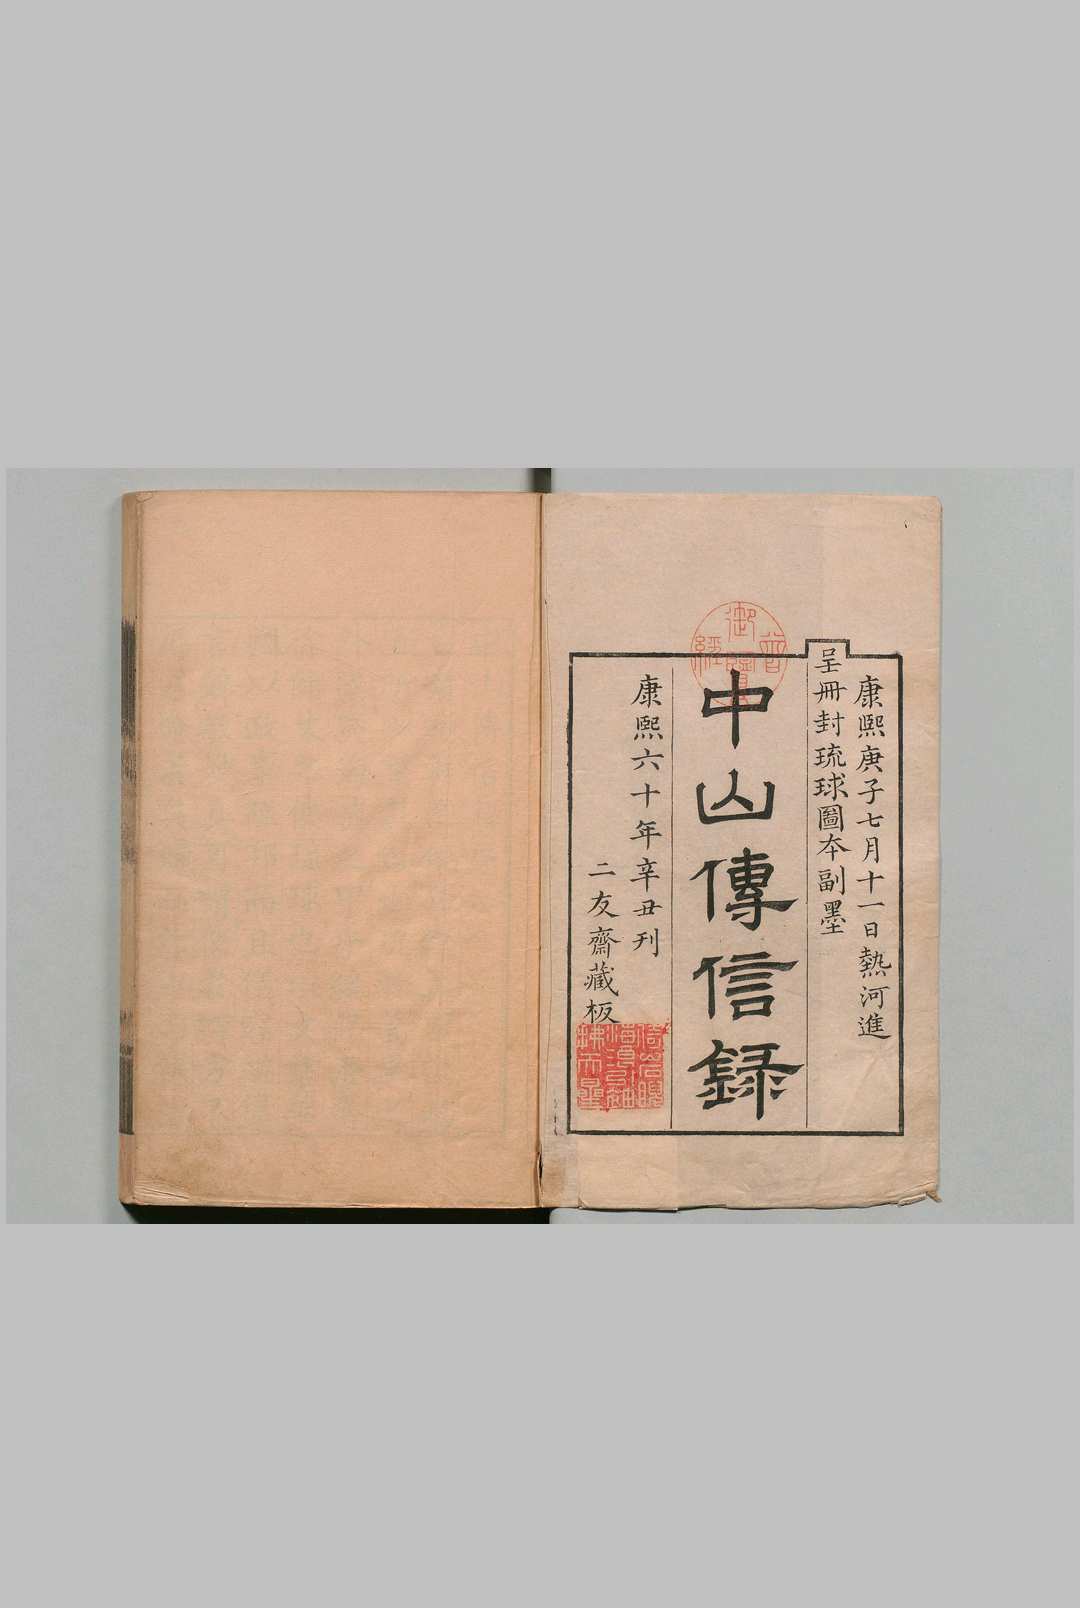 康熙庚子七月十一日熱河進
呈冊封琉球圖本副墨
中山傳信録
康熙六十年辛丑刊
二友齋藏板